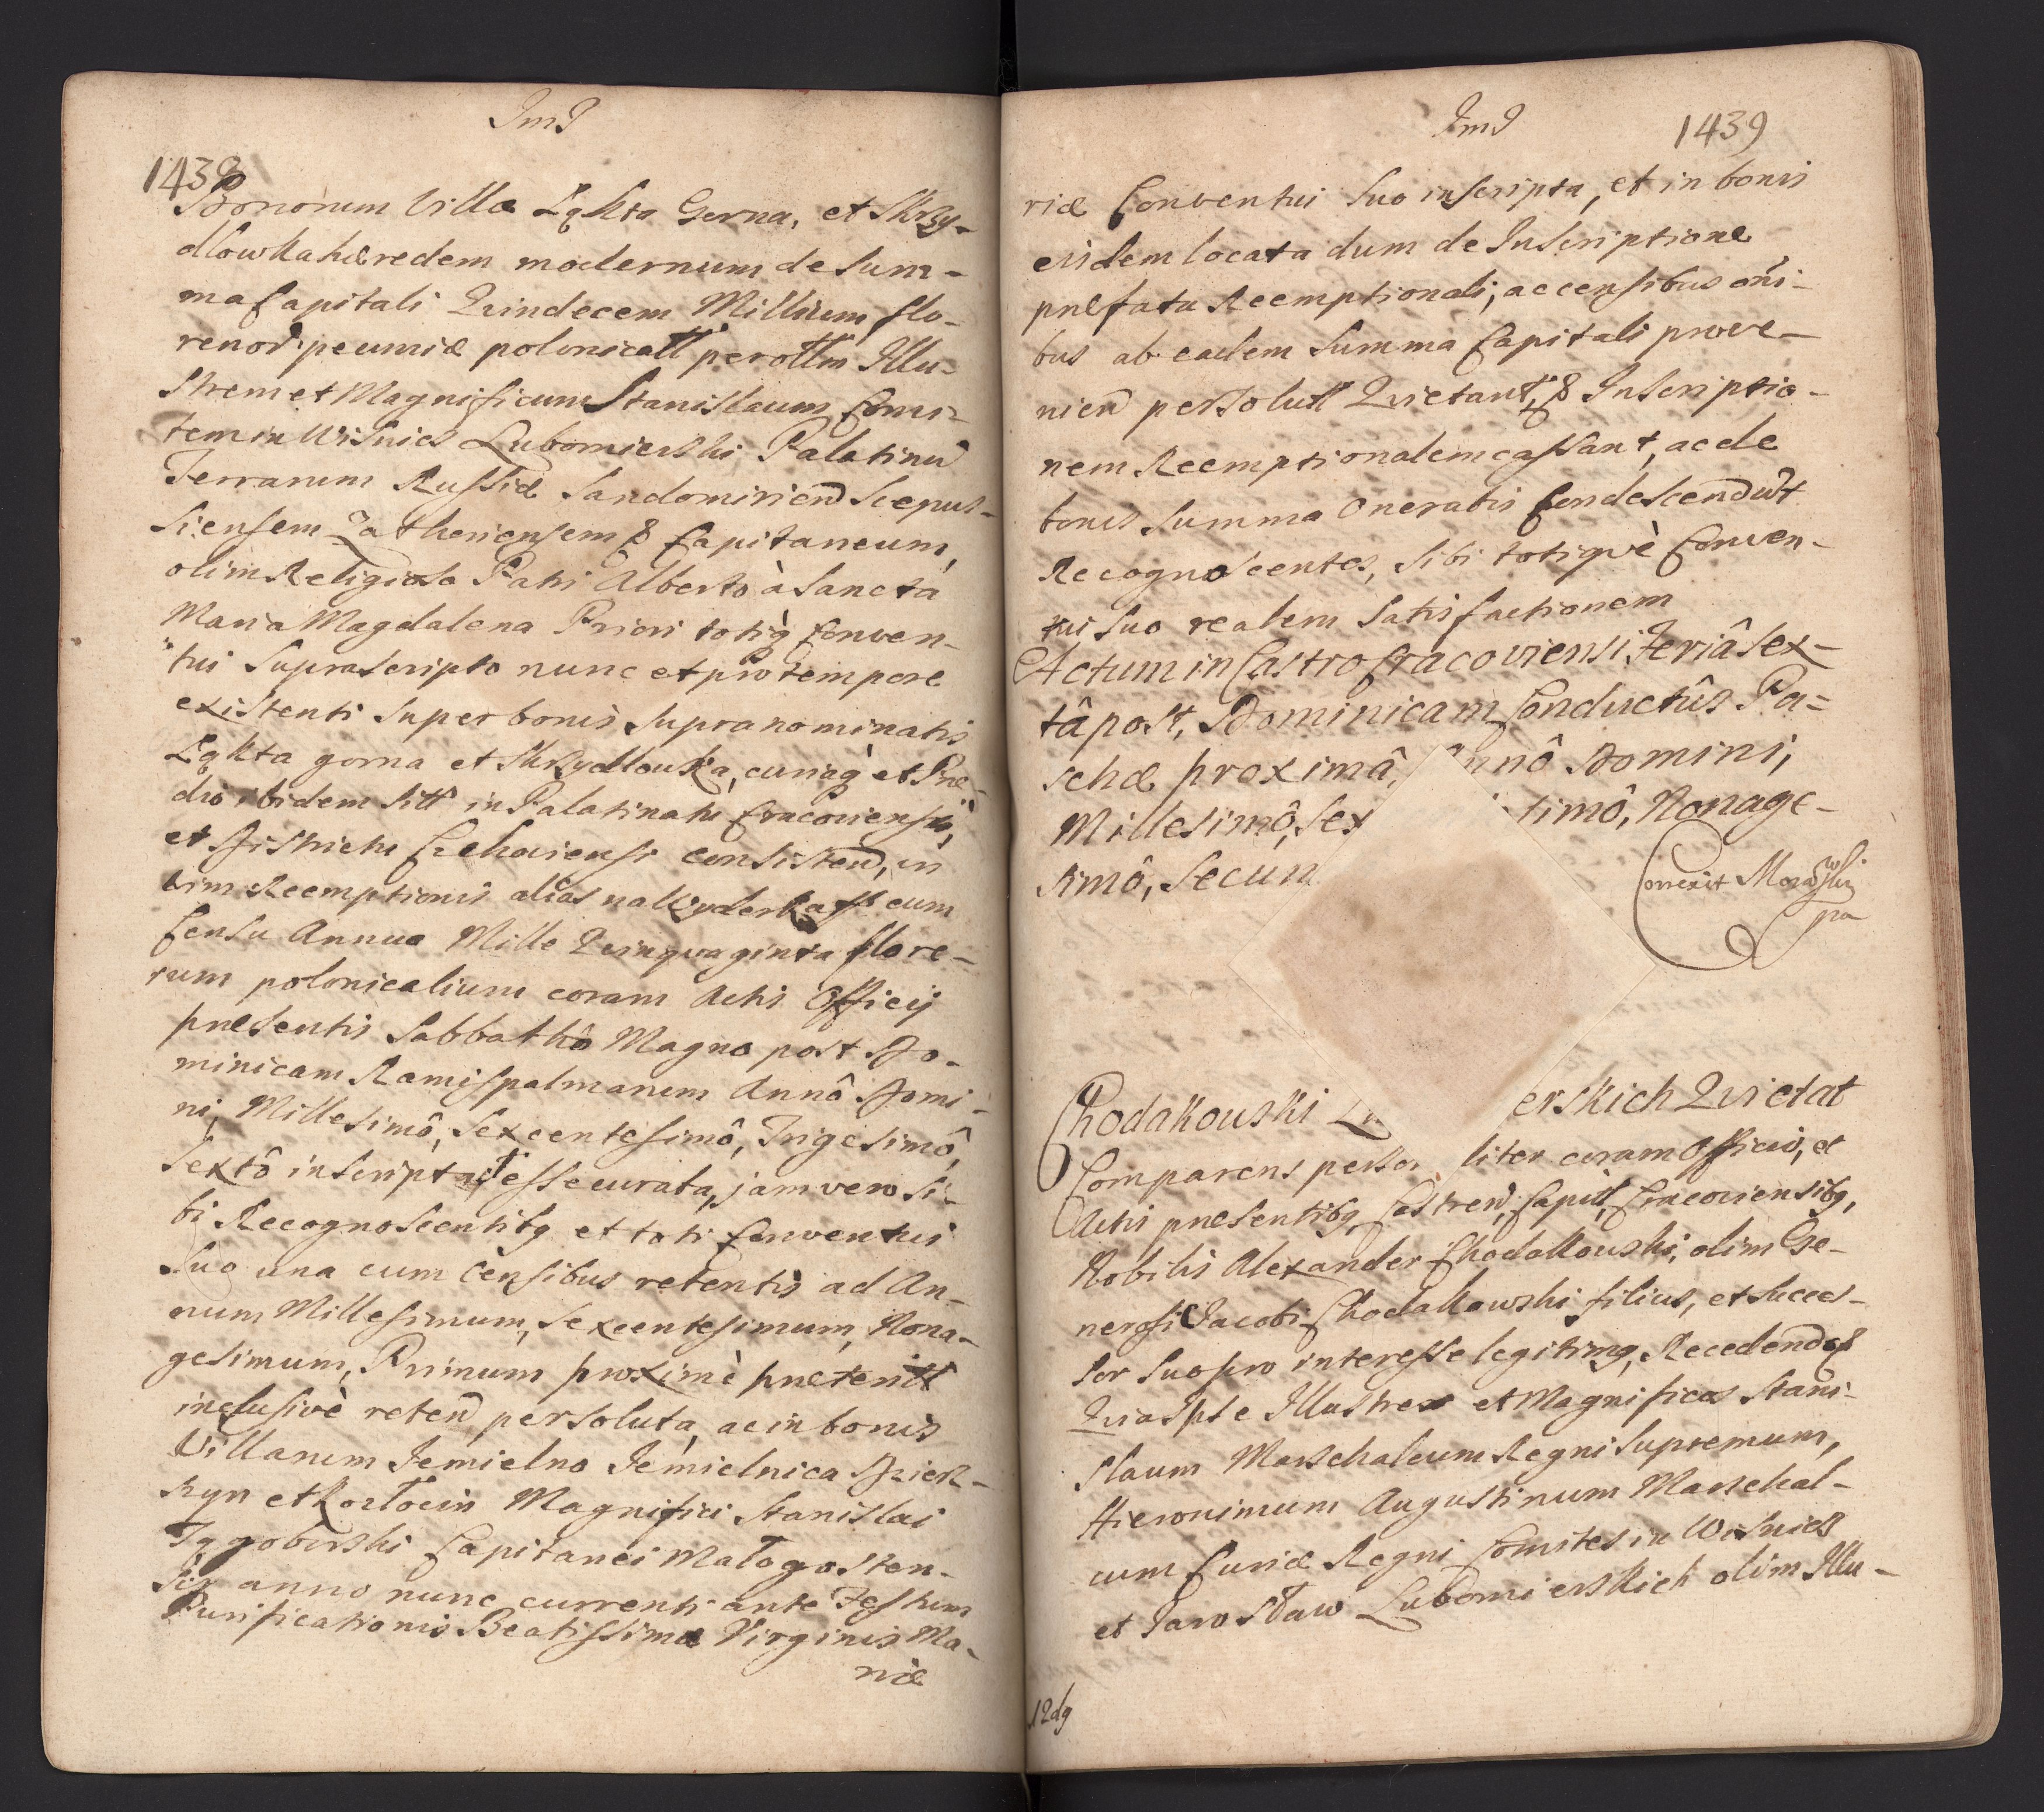 ImJ
1438
Bonorum Villæ Łąkta Gorna, et Skrzy-
dlowka hæredem modernum de Sum-
ma Capitali Quindecem Millium flo-
renor pecuniæ polonicall per ollm Illu-
strem et Magnificum Stanislaum Comi-
tem in Wisnicz Lubomierski Palatinu
Terrarum Russiæ Sandomirien Scepus-
siensem Zathoriensem & Capitaneum,
olim Religioso Patri Alberto à Sancta
Maria Magdalena Priori totiq Conven-
tui Suprascripto nunc et pro tempore
existenti super bonis supranominatis
Łąkta gorna et Skrzydlouka, curiaq et Præ-
dio ibidem sitt in Palatinatu Cracoviensi,
et Districtu Czchoviensi consisten, in
vim Reemptionis alias na Wyderkaff cum
Censu Annuo Mille Quinquaginta flore-
rum polonicalium coram Actis Officij
præsentis Sabbathô Magno post Do-
minicam Ramispalmarum Annô Domi-
ni, Millesimô, Sexcentesimô, Trigesimô,
Sextô inscripta et assecurata, jam vero si-
bi Recognoscentibq et toti Conventui
Suo una cum Censibus retentis ad An-
num Millesimum, Sexcentesimum, Nona-
gesimum, Primum proximè præteritt
inclusivè reten persoluta, ac in bonis
Villarum Jemielno Jemielnica Dzierz-
kyn et Korłocin Magnifici Stanislai
Tęgoborski Capitanei Małogosten-
sis anno nunc currenti ante Festum
Purificationis Beatissimæ Virginis Ma-
riæ
ImJ
1439
riæ Conventui Suo inscripta, et in bonis
eisdem locata dum de Inscriptione
præfata Reemptionali, ac censibus omi-
bus ab eadem Summa Capitali prove-
nien persolutt Quietant, & Inscriptio-
nem Reemptionalem cassant, ac de
bonis Summa Oneratis Condescendut
Recognoscentes, sibi totique Conven-
tui Suo realem Satisfactionem
Actum in Castro Cracoviensi Feriâ Sex-
tâ post, Dominicam Conductûs Pa-
schæ proximâ, Annô Domini,
Millesimô, Sex timô, Nonage-
simô, Secun
Correxit
pa
Chodakouski Lu erskich Quietat
Comparens person liter coram Officio, et
Actis præsentibq Castren, Capitt, Cracoviensibq,
Nobilis Alexander Chodakouski, olim Ge-
nerosi Jacobi Chodakowski filius, et Succes-
sor Suo pro interesse legitimq, Recedendo &
Quia Ipse Illustres et Magnificos Stani-
slaum Marschalcum Regni Supremum,
Hieronimum Augustinum Marschal-
cum Curiæ Regni Comites in Wisnicz
et Jarosław Lubomierskich olim Illu-
12dq